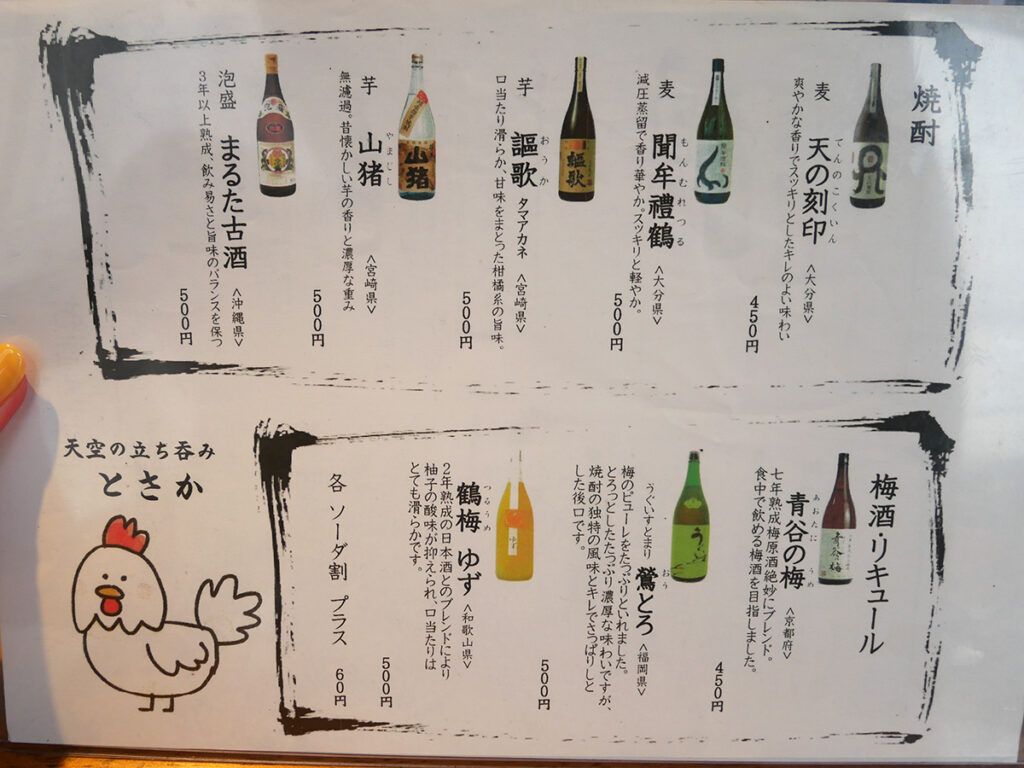 焼酎
麦
天の刻印
てんのこくいん
<大分県>
爽やかな香りでスッキリとしたキレのよい味わい
450円
麦
聞牟禮鶴
もんむれつる
<大分県>
減圧蒸留で香り華やか。スッキリと軽やか。
500円
芋
謳歌
おうか
タマアカネ
<宮崎県>
口当たり滑らか、甘味をまとった柑橘系の旨味。
500円
謳歌
芋
山猪
やまじし
<宮崎県>
無濾過。昔懐かしい芋の香りと濃厚な重み
500円
山猪
泡盛
まるた古酒
<沖縄県>
3年以上熟成、飲み易さと旨味のバランスを保つ
500円
梅酒・リキュール
青谷の梅
あおたに うめ
<京都府>
七年熟成梅原酒絶妙にブレンド。
食中で飲める梅酒を目指しました。
450円
青谷の梅
うぐいすとまり
鶯とろ
おう
<福岡県>
梅のピューレをたっぷりといれました。
とろっとしたたっぷり濃厚な味わいですが、
焼酎の独特の風味とキレでさっぱりしと
した後口です。
500円
鶴梅 ゆず
つるうめ
<和歌山県>
2年熟成の日本酒とのブレンドにより
柚子の酸味が抑えられ、口当たりは
とても滑らかです。
500円
ゆず
各 ソーダ割 プラス 60円
天空の立ち呑み
とさか